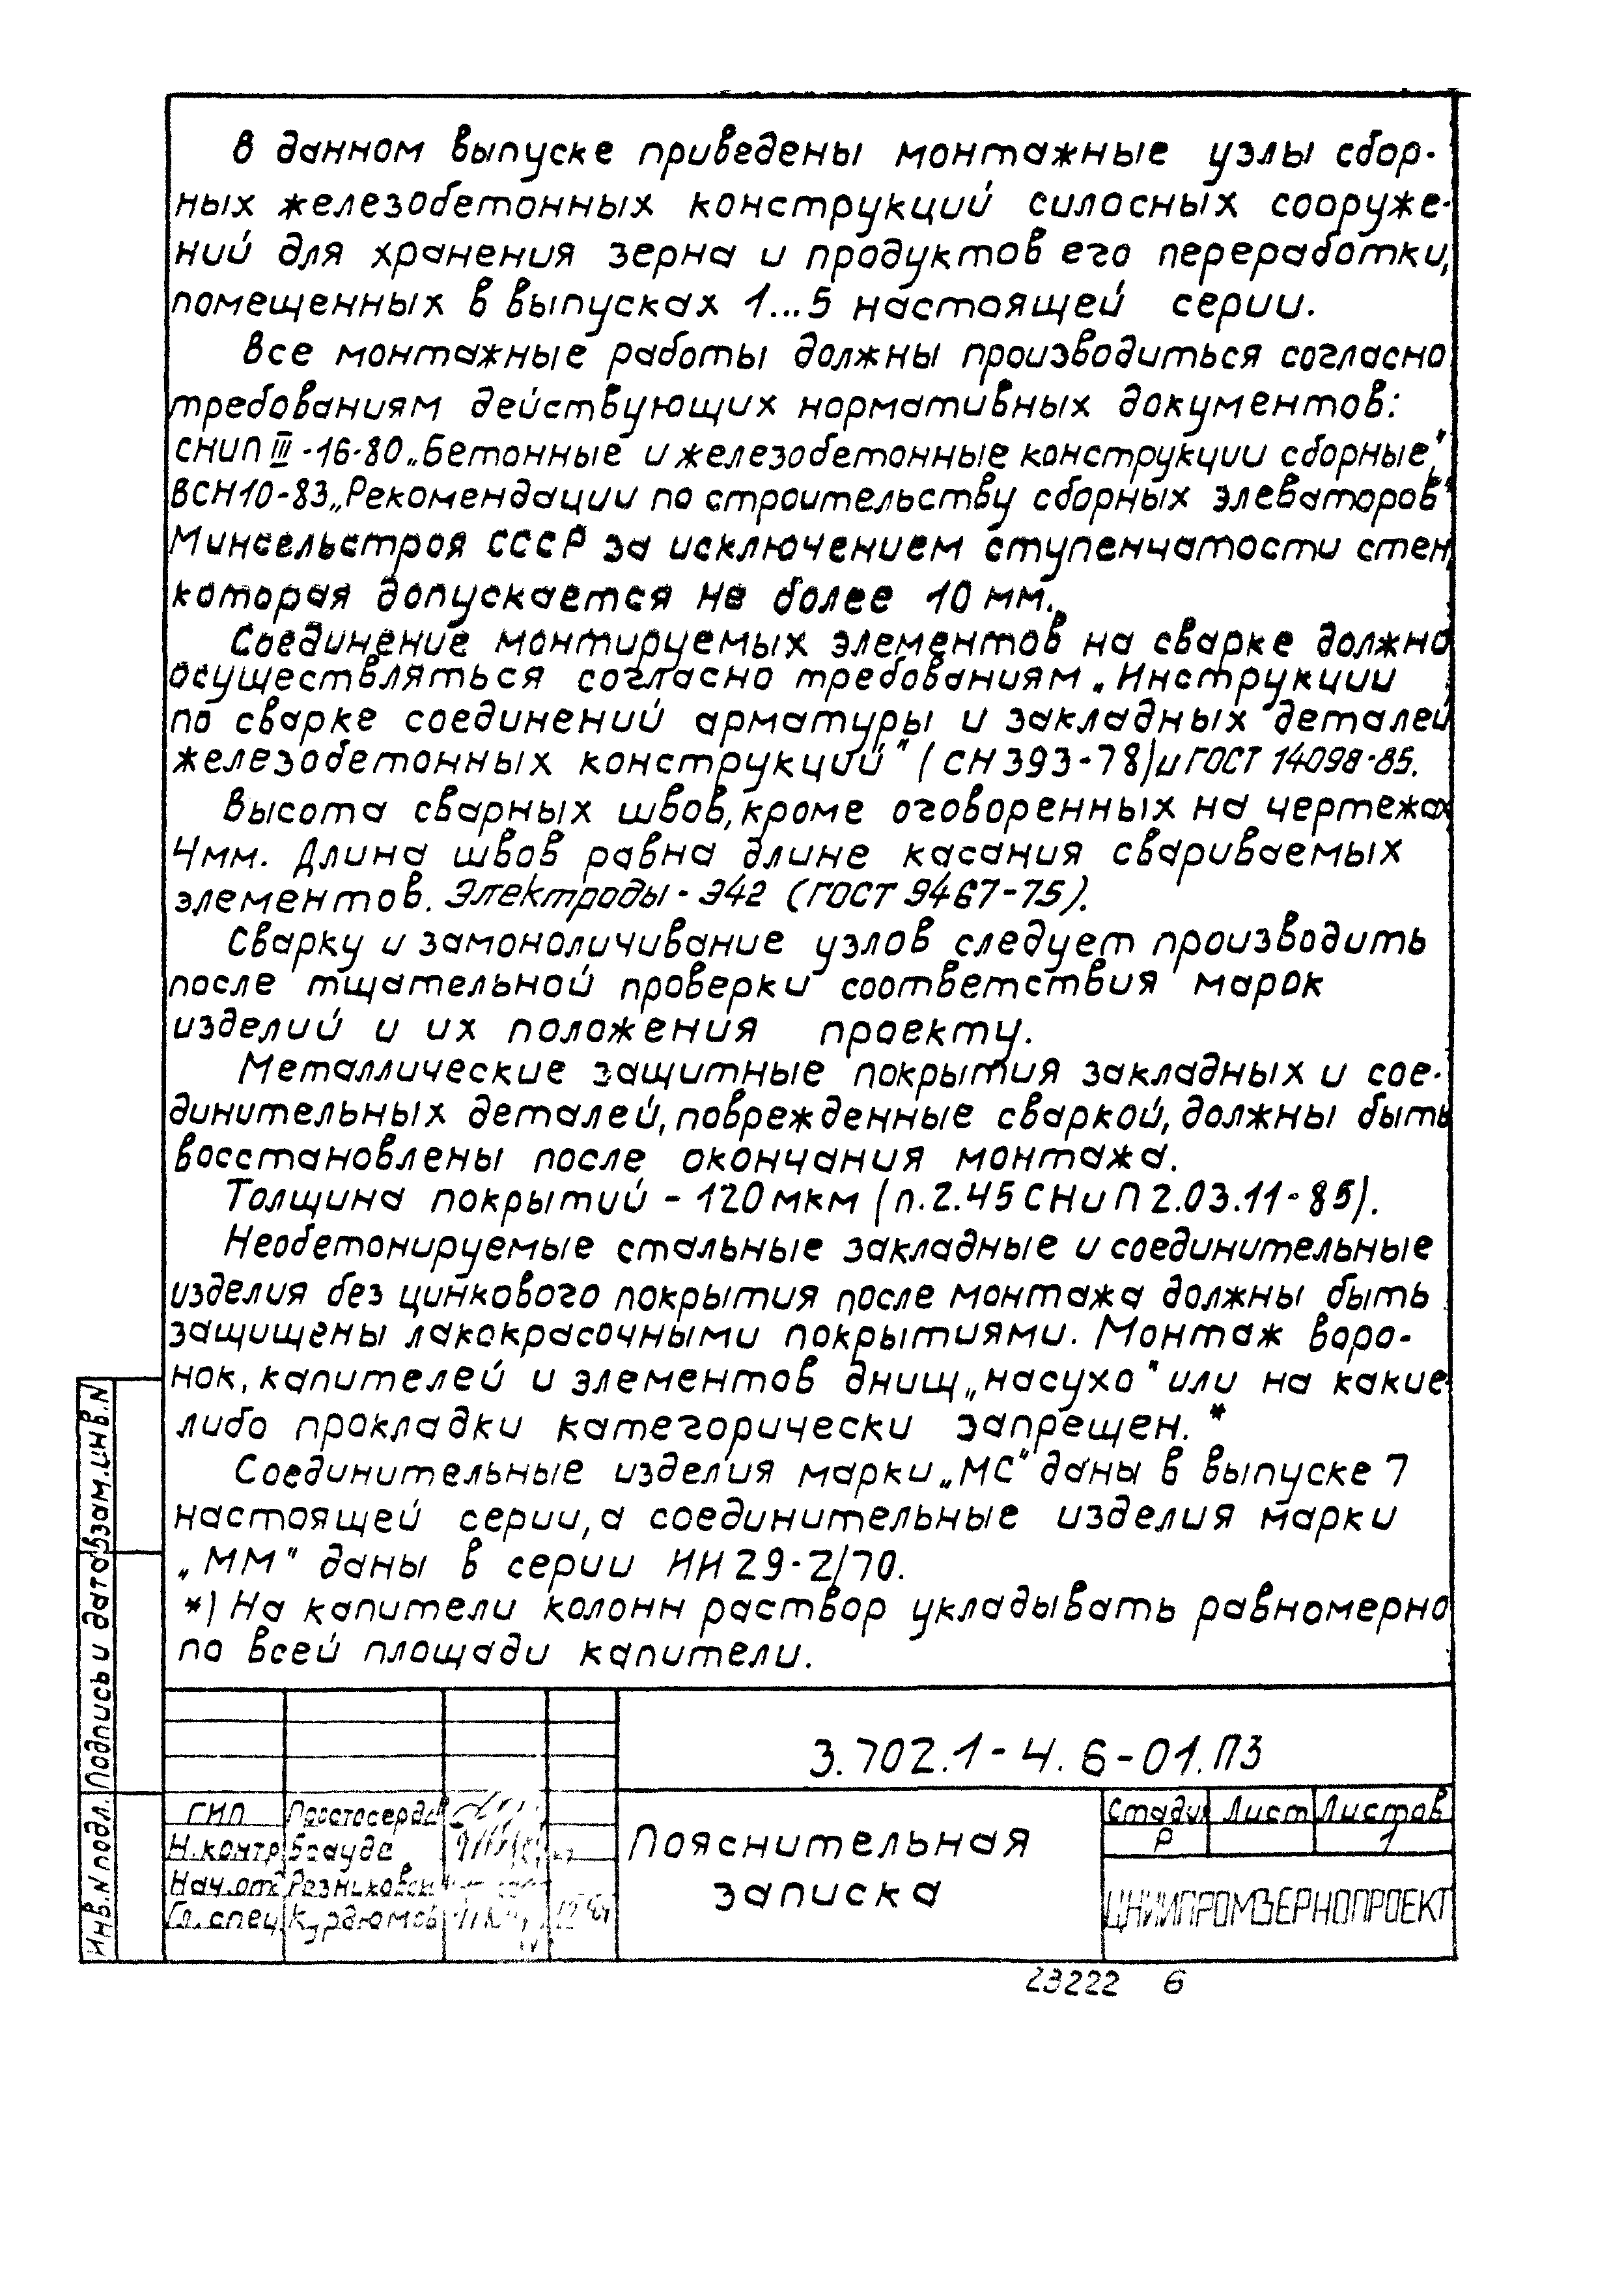 В данном выпуске приведены монтажные узлы сбор-
ных железобетонных конструкций силосных сооруже-
ний для хранения зерна и продуктов его переработки,
помещенных в выпусках 1...5 настоящей серии.
Все монтажные работы должны производиться согласно
требованиям действующих нормативных документов:
СНиП III-16-80 „Бетонные и железобетонные конструкции сборные",
ВСН10-83 „Рекомендации по строительству сборных элеваторов"
Минсельстроя СССР за исключением ступенчатости стен,
которая допускается не более 10 мм.
Соединение монтируемых элементов на сварке должно
осуществляться согласно требованиям „Инструкции
по сварке соединений арматуры и закладных деталей
железобетонных конструкций" (СН 393-78) и ГОСТ 14098-85.
Высота сварных швов, кроме оговоренных на чертежах
4мм. Длина швов равна длине касания свариваемых
элементов. Электроды - Э42 (ГОСТ 9467-75).
Сварку и замоноличивание узлов следует производить
после тщательной проверки соответствия марок
изделий и их положения проекту.
Металлические защитные покрытия закладных и сое-
динительных деталей, поврежденные сваркой, должны быть
восстановлены после окончания монтажа.
Толщина покрытий - 120 мкм (п.2.45 СНиП 2.03.11-85).
Необетонируемые стальные закладные и соединительные
изделия без цинкового покрытия после монтажа должны быть
защищены лакокрасочными покрытиями. Монтаж воро-
нок, капителей и элементов днищ „насухо" или на какие-
либо прокладки категорически запрещен.*
Соединительные изделия марки „МС" даны в выпуске 7
настоящей серии, а соединительные изделия марки
„ММ" даны в серии ИИ 29-2/70.
*) На капители колонн раствор укладывать равномерно
по всей площади капители.
3.702.1-4.6-01.ПЗ
ГИП Простосердов
Н.контр. Брауде
Нач.отд
Гл.спец. Курдюмов
Пояснительная
записка
Стадия Лист Листов
Р 1
ЦНИИПРОМЗЕРНОПРОЕКТ
Взам.инв.N
Подпись и дата
Инв.N подл.
23222 6